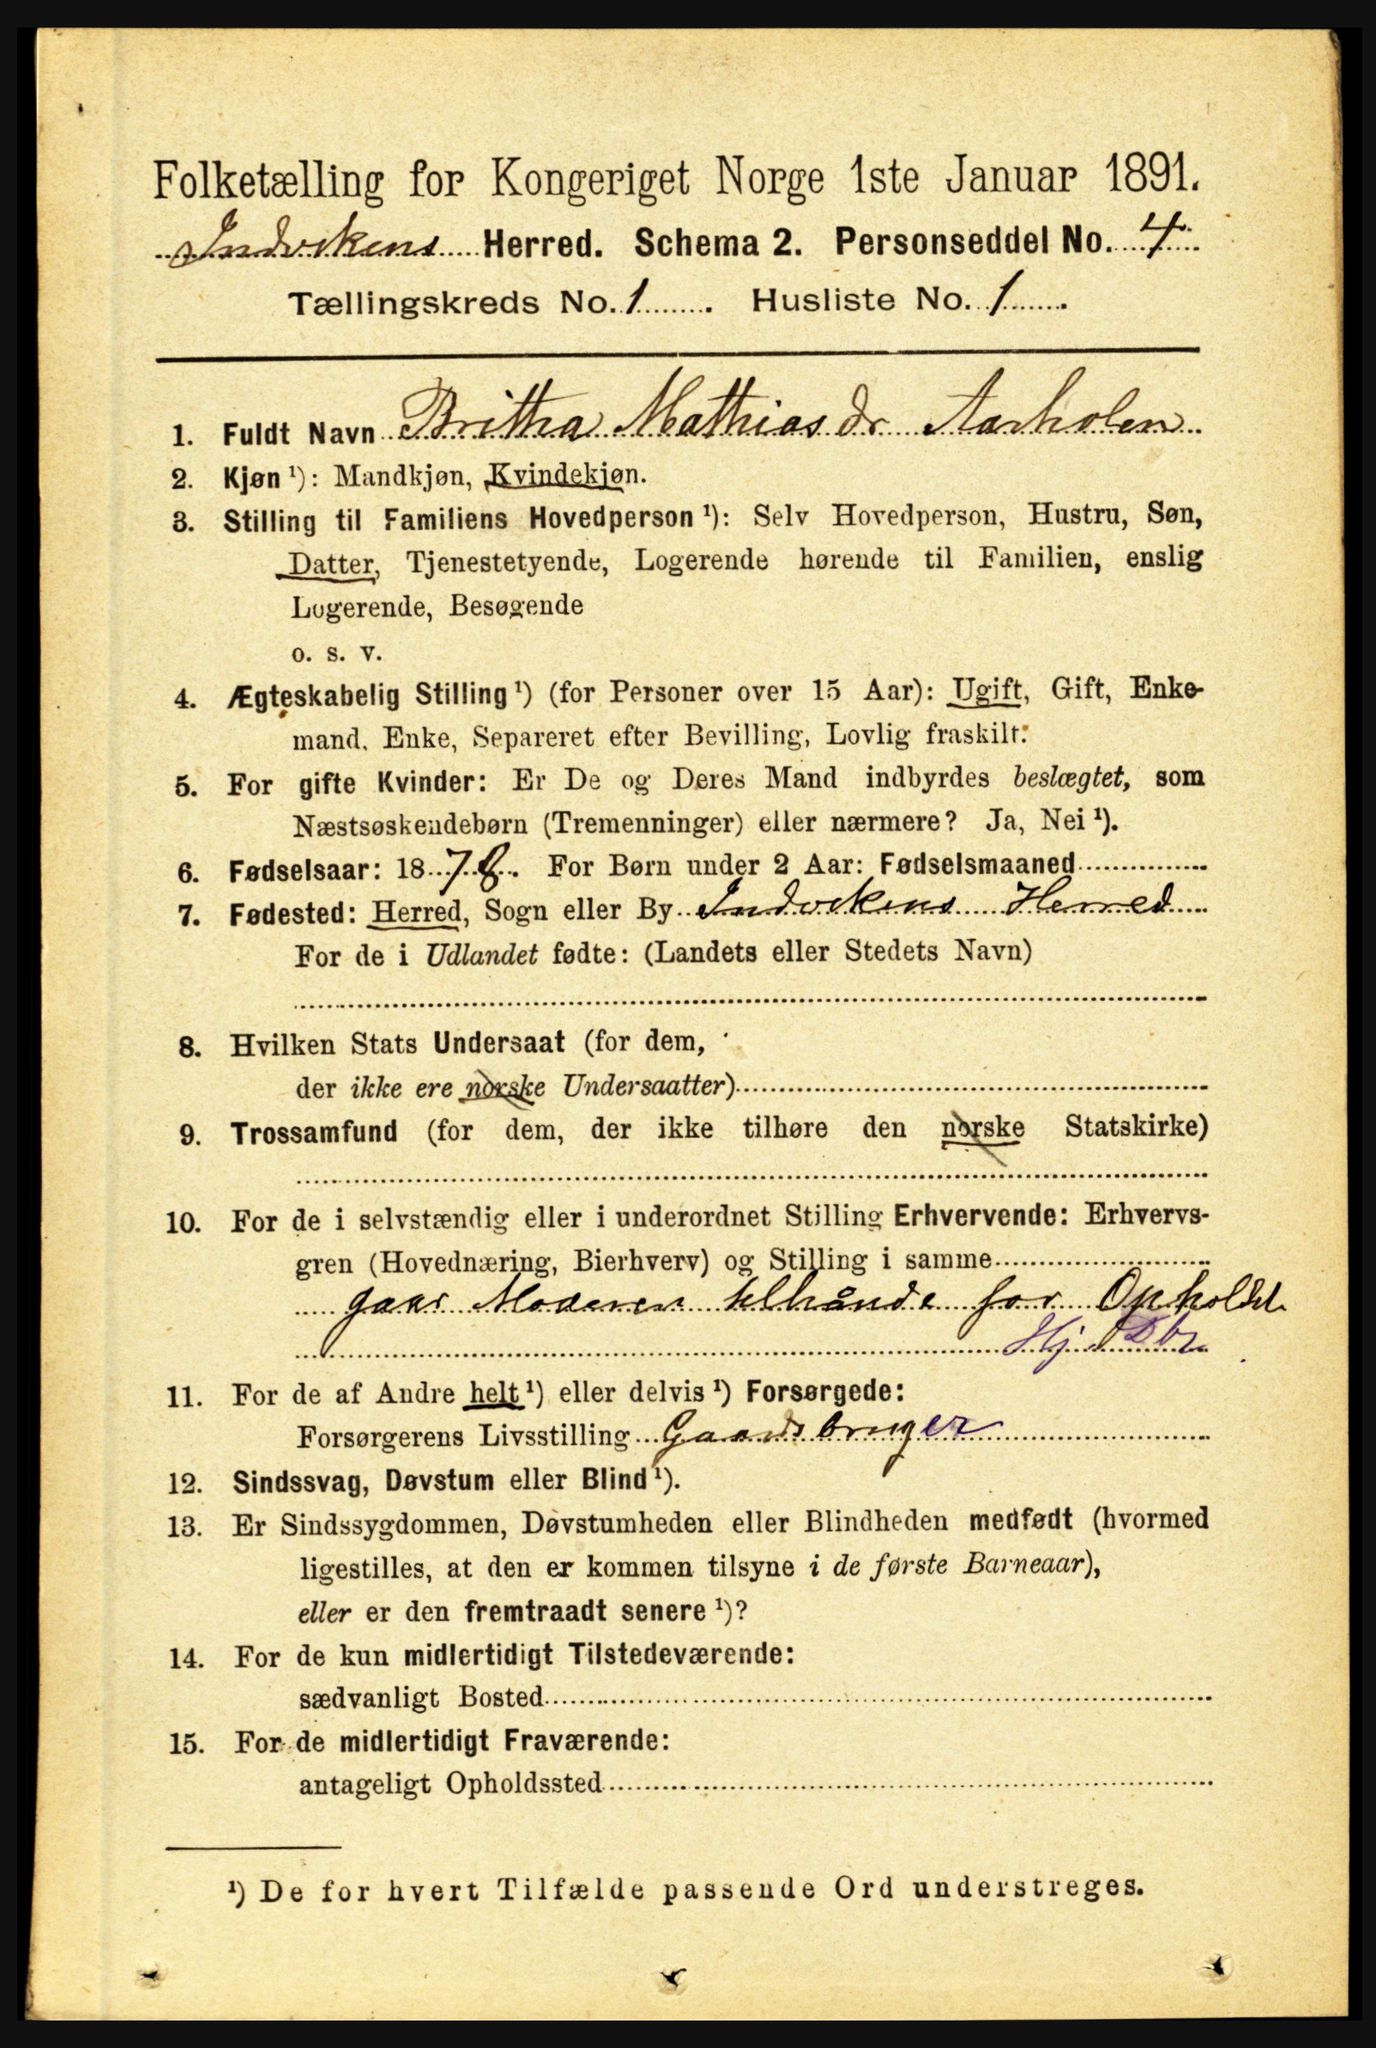 Folketælling for Kongeriget Norge 1ste Januar 1891.
Indvikens Herred. Schema 2. Personseddel No. 4
Tællingskreds No. 1. Husliste No. 1.
1. Fuldt Navn Britha Mathiasdr Aarholen
2. Kjøn ¹): Mandkjøn, Kvindekjøn.
3. Stilling til Familiens Hovedperson ¹): Selv Hovedperson, Hustru, Søn,
Datter, Tjenestetyende, Logerende hørende til Familien, enslig
Logerende, Besøgende
o. s. v.
4. Ægteskabelig Stilling ¹) (for Personer over 15 Aar): Ugift, Gift, Enke-
mand, Enke, Separeret efter Bevilling, Lovlig fraskilt.
5. For gifte Kvinder: Er De og Deres Mand indbyrdes beslægtet, som
Næstsøskendebørn (Tremenninger) eller nærmere? Ja, Nei ¹).
6. Fødselsaar: 1878. For Børn under 2 Aar: Fødselsmaaned
7. Fødested: Herred, Sogn eller By Indvikens Herred
For de i Udlandet fødte: (Landets eller Stedets Navn)
8. Hvilken Stats Undersaat (for dem,
der ikke ere norske Undersaatter)
9. Trossamfund (for dem, der ikke tilhøre den norske Statskirke)
10. For de i selvstændig eller i underordnet Stilling Erhvervende: Erhvervs-
gren (Hovednæring, Bierhverv) og Stilling i samme
gaar Moderen tilhånde for Opholdet
Hj. Dtr
11. For de af Andre helt ¹) eller delvis ¹) Forsørgede:
Forsørgerens Livsstilling Gaardsbruger
12. Sindssvag, Døvstum eller Blind ¹).
13. Er Sindssygdommen, Døvstumheden eller Blindheden medfødt (hvormed
ligestilles, at den er kommen tilsyne i de første Barneaar),
eller er den fremtraadt senere ¹)?
14. For de kun midlertidigt Tilstedeværende:
sædvanligt Bosted
15. For de midlertidigt Fraværende:
antageligt Opholdssted
¹) De for hvert Tilfælde passende Ord understreges.